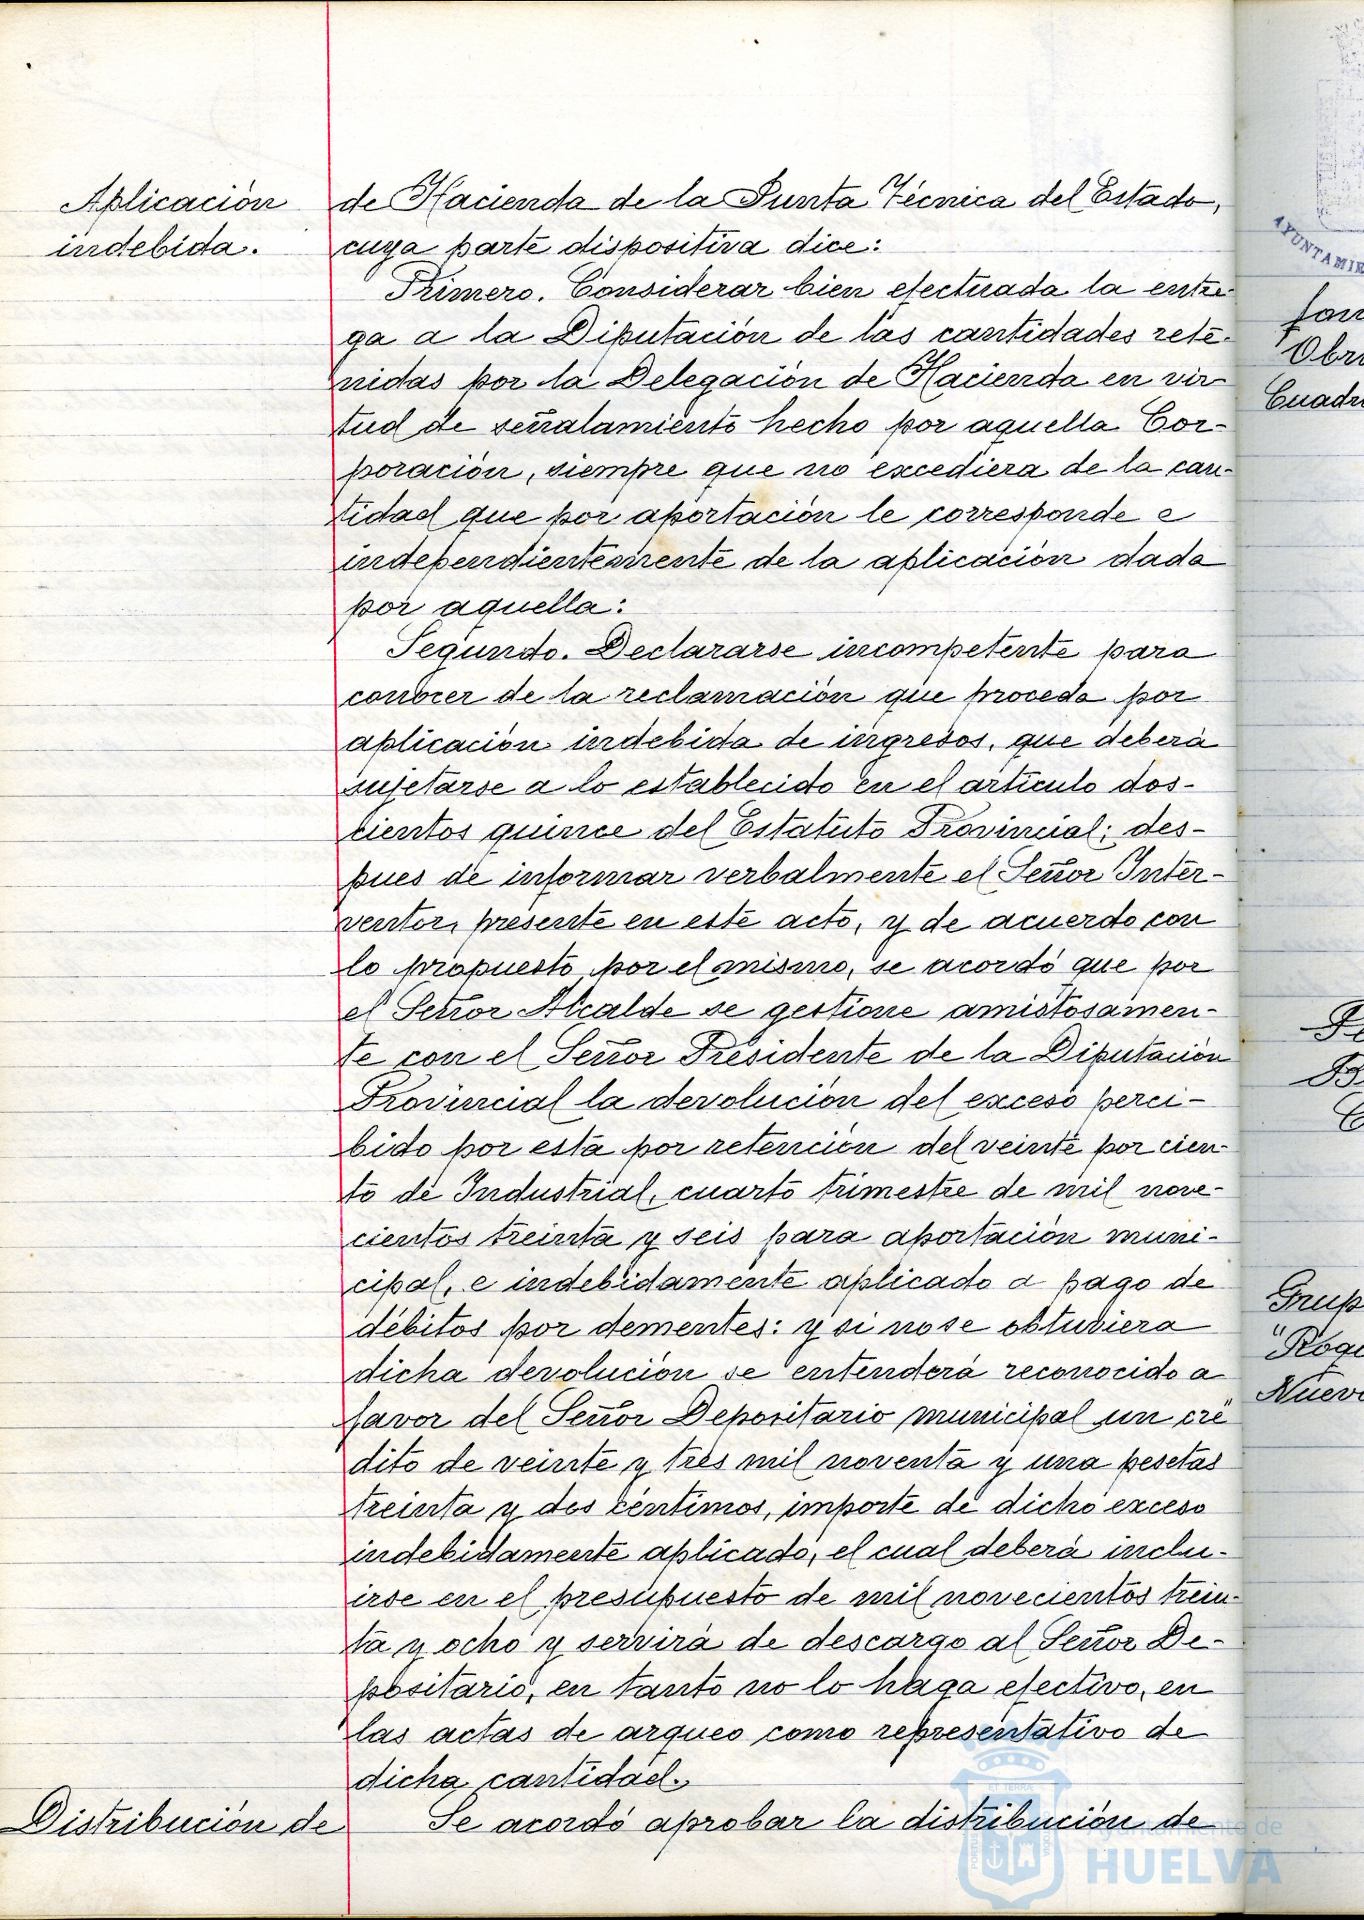 Aplicación
indebida.
de Hacienda de la Junta Técnica del Estado,
cuya parte dispositiva dice:
Primero. Considerar bien efectuada la entre-
ga a la Diputación de las cantidades rete-
nidas por la Delegación de Hacienda en vir-
tud de señalamiento hecho por aquella Cor-
poración, siempre que no excediera de la can-
tidad que por aportación le corresponde e
independientemente de la aplicación dada
por aquella:
Segundo. Declararse incompetente para
conocer de la reclamación que proceda por
aplicación indebida de ingresos, que deberá
sujetarse a lo establecido en el artículo dos-
cientos quince del Estatuto Provincial; des-
pues de informar verbalmente el Señor Inter-
ventor, presente en este acto, y de acuerdo con
lo propuesto por el mismo, se acordó que por
el Señor Alcalde se gestione amistosamen-
te con el Señor Presidente de la Diputación
Provincial la devolución del exceso perci-
bido por esta por retención del veinte por cien-
to de Industrial, cuarto trimestre de mil nove-
cientos treinta y seis para aportación muni-
cipal, e indebidamente aplicado a pago de
débitos por dementes: y si no se obtuviera
dicha devolución se entenderá reconocido a
favor del Señor Depositario municipal un cré-
dito de veinte y tres mil noventa y una pesetas
treinta y dos céntimos, importe de dicho exceso
indebidamente aplicado, el cual deberá inclu-
irse en el presupuesto de mil novecientos trein-
ta y ocho y servirá de descargo al Señor De-
positario, en tanto no lo haga efectivo, en
las actas de arqueo como representativo de
dicha cantidad.
Distribución de
Se acordó aprobar la distribución de
Ayuntamiento de
HUELVA
AYUNTAMIE
Obr
Cuadr
Grup
"Roqu
Nuev